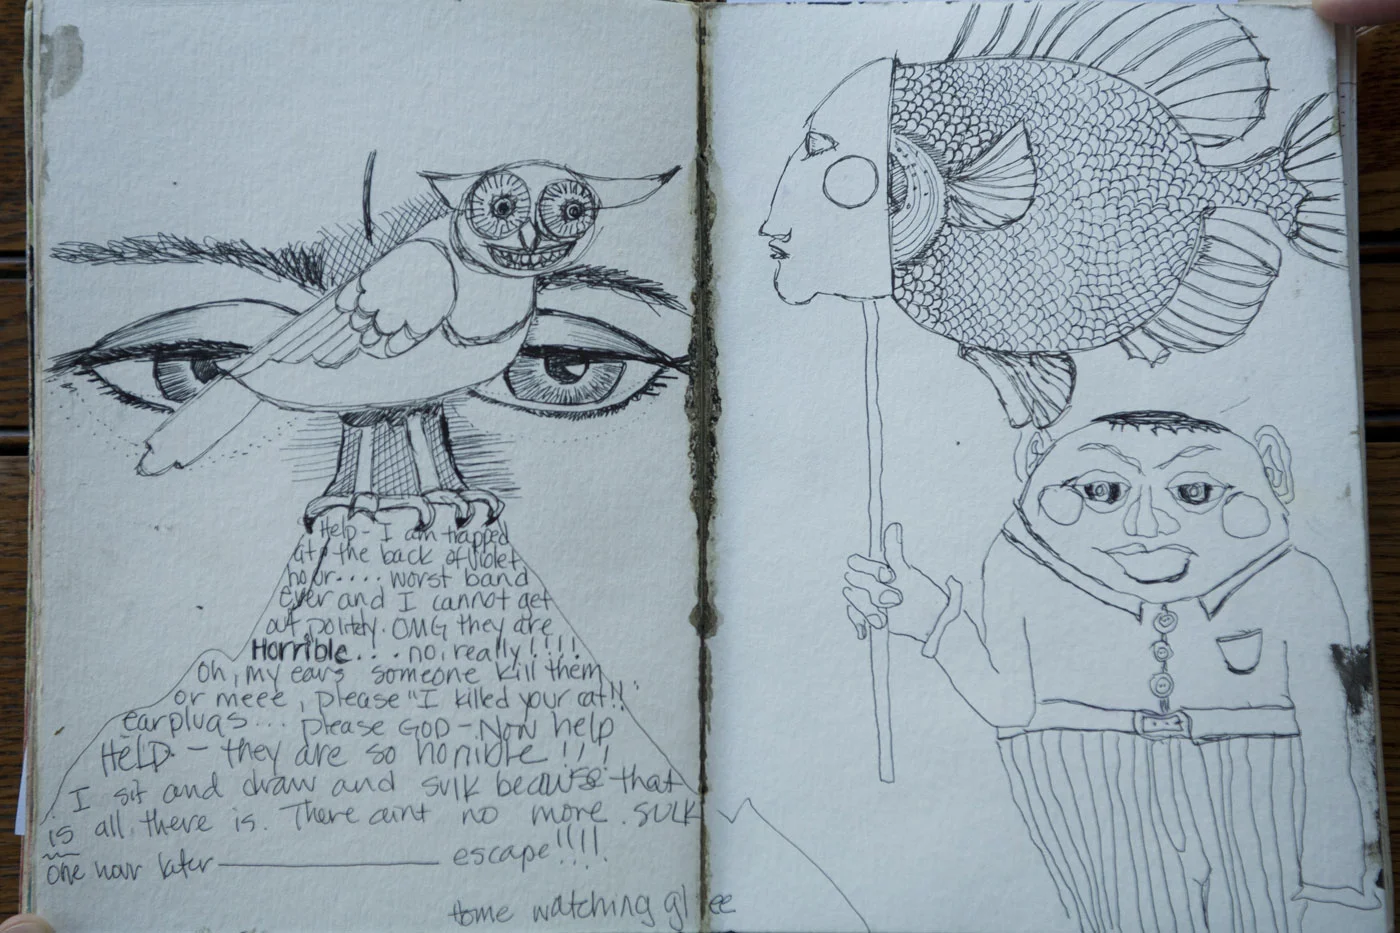 Help - I am trapped
at the back of violet
hour.... worst band
ever and I cannot get
out politely. OMG they are
Horrible... no, really!!!!
Oh, my ears someone kill them
or meee, please "I killed your cat!!"
earplugs... please GOD - Now help
HELP. - they are so horrible!!!
I sit and draw and sulk because that
is all there is. There aint no more. SULK
one hour later ———— escape!!!!
Home watching glee